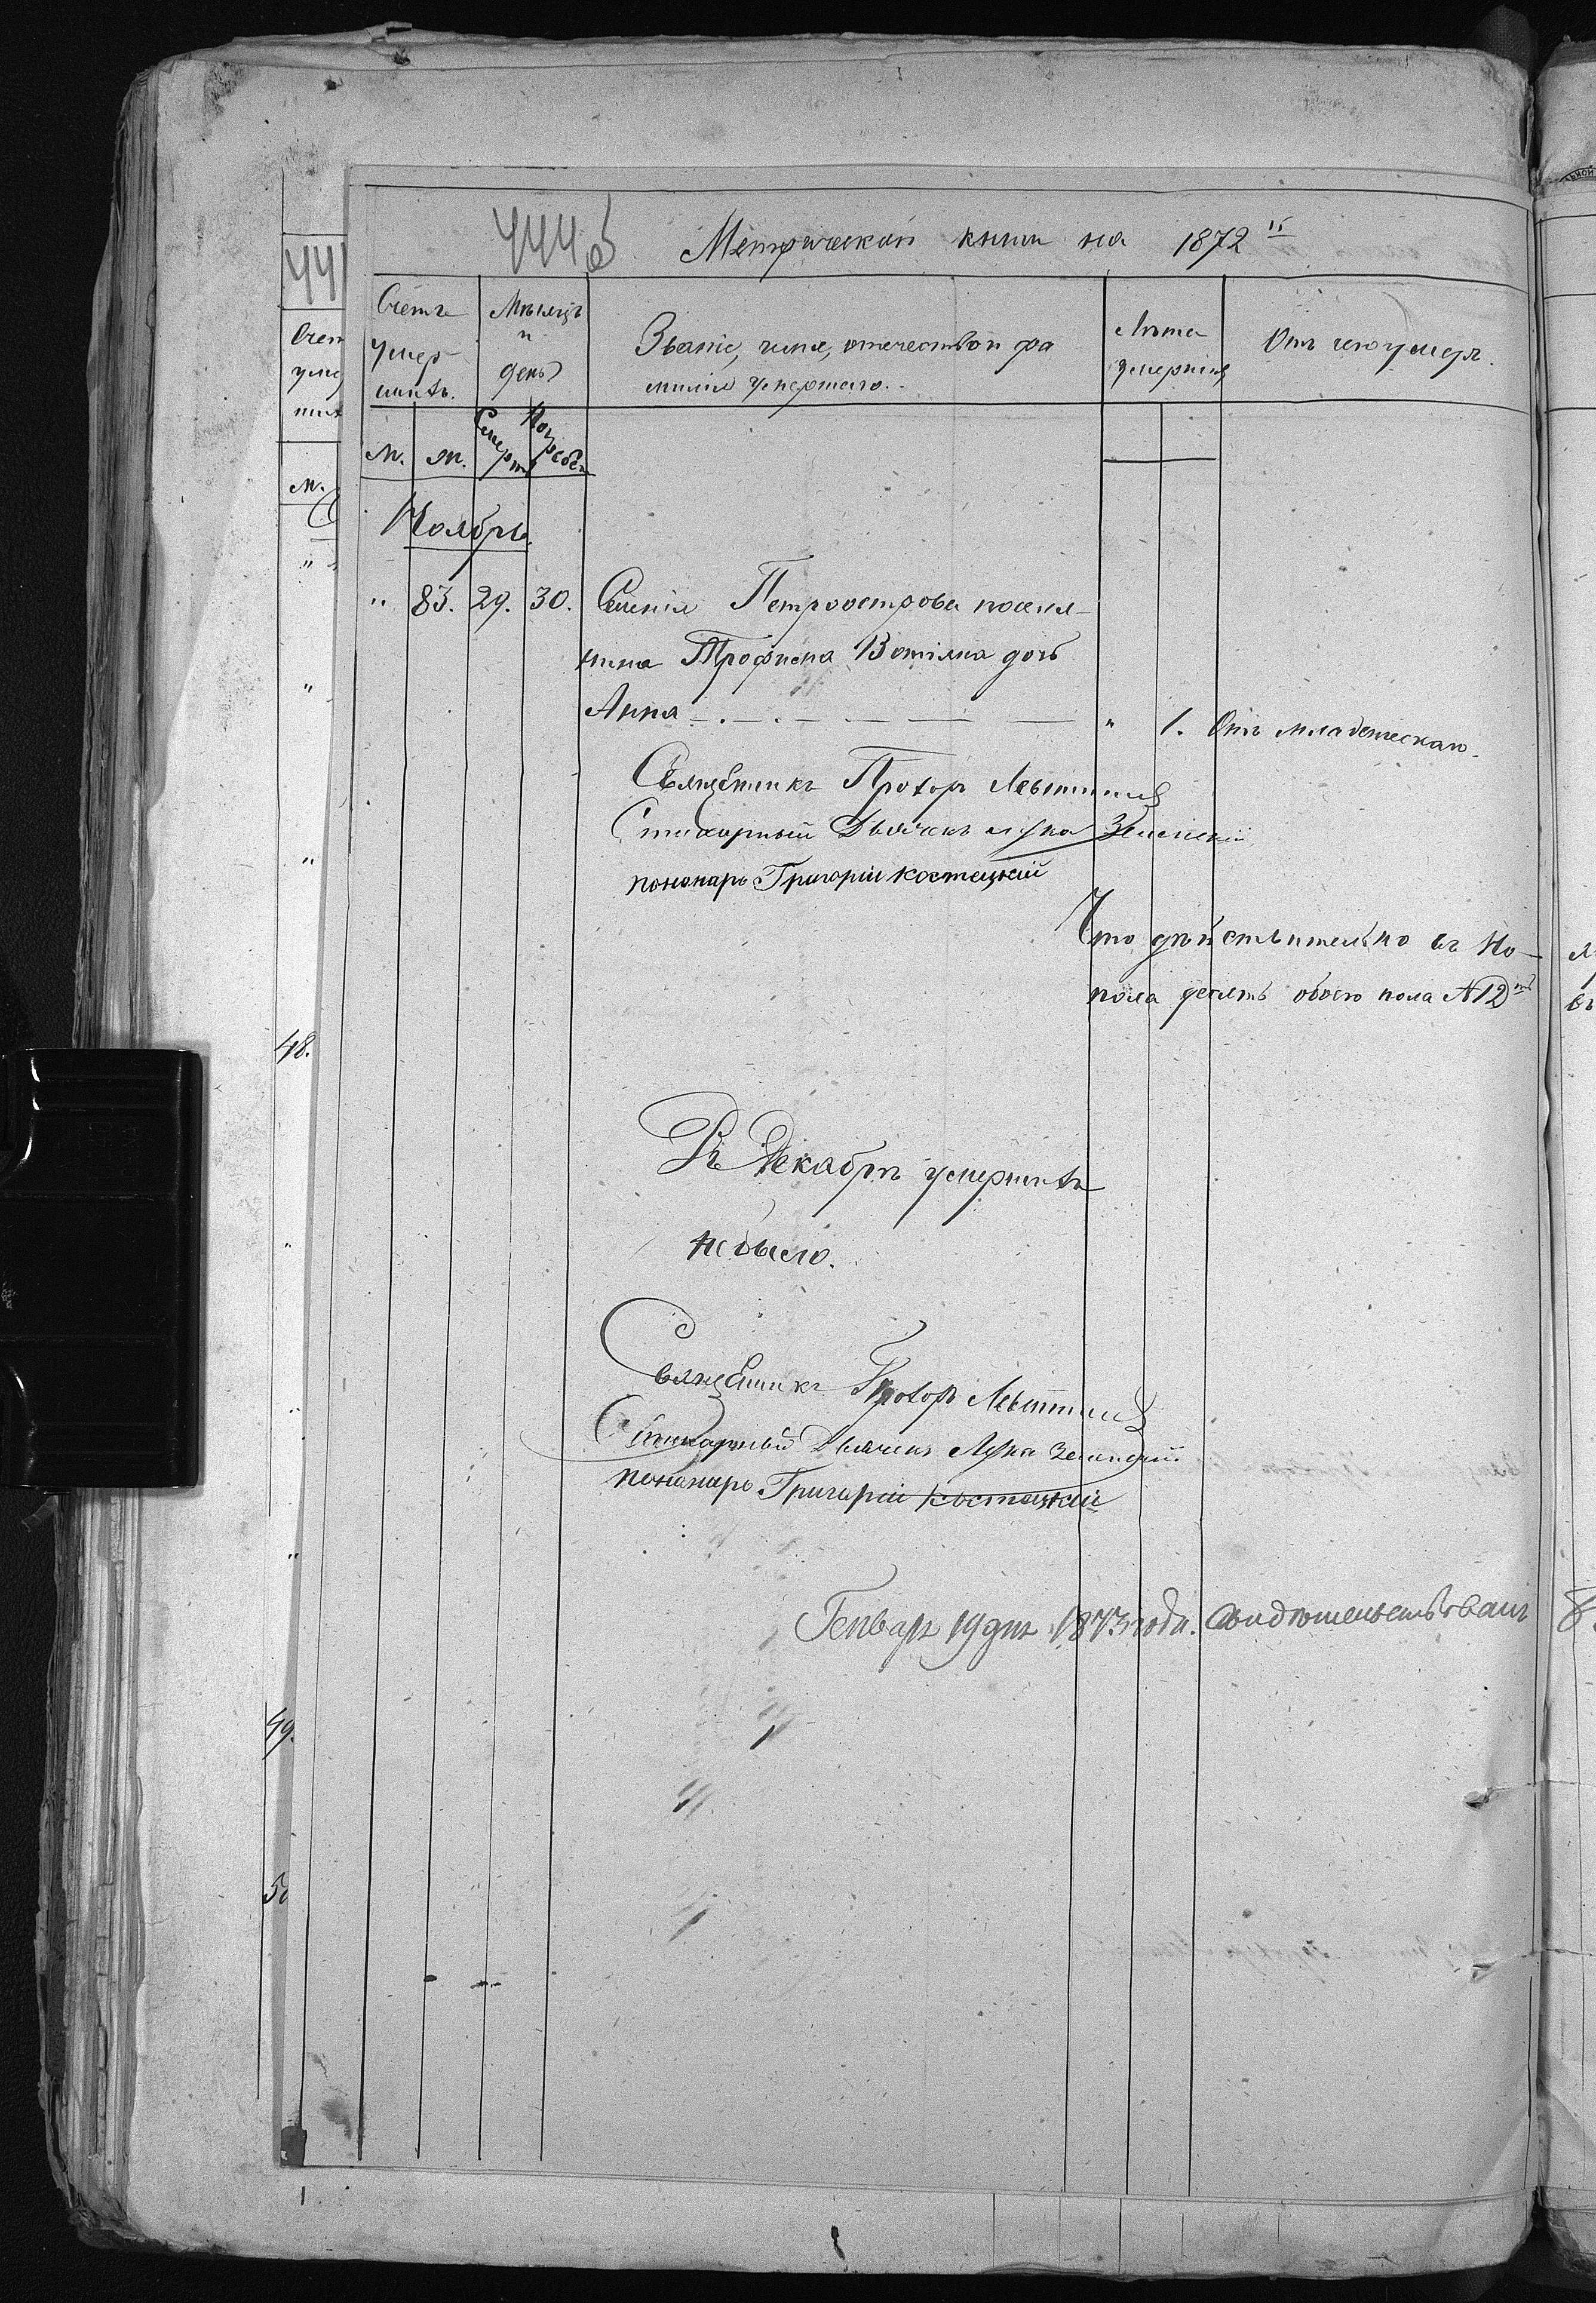 444 об
Метрической книги на 1872й
Счетъ умер шихъ.
Мѣсяцъ и день
Званіе, имя, отечество и фа
милія умершаго.
Лѣта умершихъ
Отъ чего умеръ.
м. ж. Смерти Погребен
Ноябрь.
" 83. 29. 30. Селенія Петроострова поселя-
нина Трофима дочь
Анна - . - . - - - - " 1. Отъ младенческаго.
Священникъ Прохоръ
Стихарный Дьячекъ Лука Зеленскій
пономарь Григорій Костецкій
Что дѣйствительно въ Но-
пола десять обоего пола №12ть
Въ Декабрѣ умершихъ
небыло.
Священникъ Прохоръ
Стихарный Дьячекъ Лука Зеленскій
пономарь Григорій Костецкій
Генваря 19 дня 1873 года.
44
Счет
уме
ших
м.
"
"
"
48.
"
"
"
49.
50